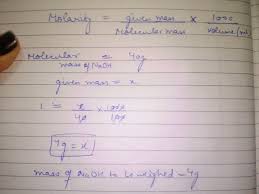 Molarity = given mass / Molecular mass × 1000 / volume (ml)
Molecular mass of NaOH = 40g
given mass = x
1 = x / 40 × 1000 / 100
4g = x
mass of NaOH to be weighed - 4g